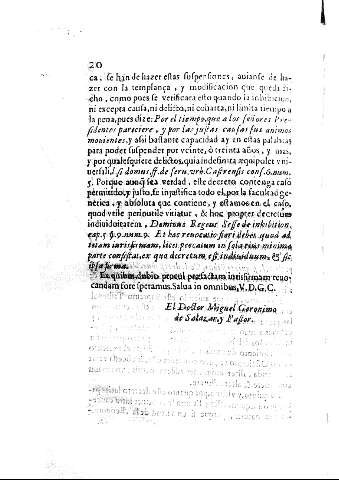 20
ca, se han de hazer estas suspensiones, avianse de ha-
zer con la templança, y modificacion que queda di-
cho, como pues se verificara esto quando la inhibicion,
ni excepta causa, ni delicto, ni coharta, ni limita tiempo a
la pena, pues dize: Por el tiempo, que a los señores Pre-
sidentes pareciere, y por las justas causas sus animos
mouientes, y assi bastante capacidad ay en estas palabras
para poder suspender por veinte, ò treinta años, y mas,
y por qualesquiere delictos, quia indefinita æquipolet v ni-
uersali, l. si domus, ff. de seru. vrb. Castrensis cons. 6. num.
5. Porque aunq̃ sea verdad, este decreto contenga caso
permitido, y justo, ser inhibitorio el, por la facultad ge-
nerica, y absoluta que contiene, y estamos en el caso,
quod vtile per inutile vitiatur, & hoc propter decretum
indiuiduitatem, Damianus Regens Sesse de inhibition.
cap. 5. §. 9. num. 9. Et hæc reuocatio fieri debet, quod ad
totum iuris firmam, licet peccatum in sola eius minima
parte consistat, ex quo decretum est indiuiduum, & sic
ipsa firma.
Ex quibus dubio procul pręfactam iurisfirmam reuo-
candam fore speramus. Salua in omnibus, V. D. G. C.
El Doctor Miguel Geronimo
de Salazar, y Pastor.